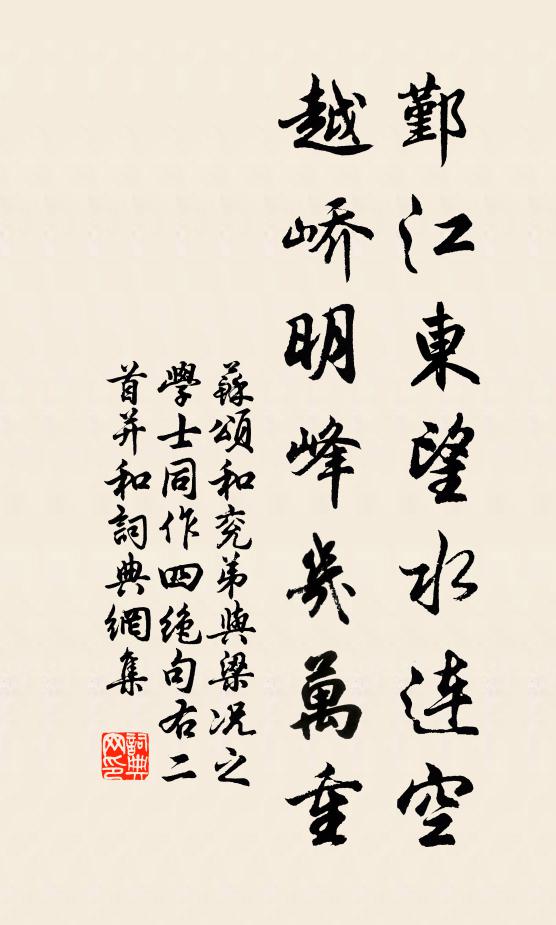 鄞江東望水连空
越峤明峰幾萬重
蘇頌和兖弟與梁况之
學士同作四绝句右二
首并和詞典網集
詞典网印